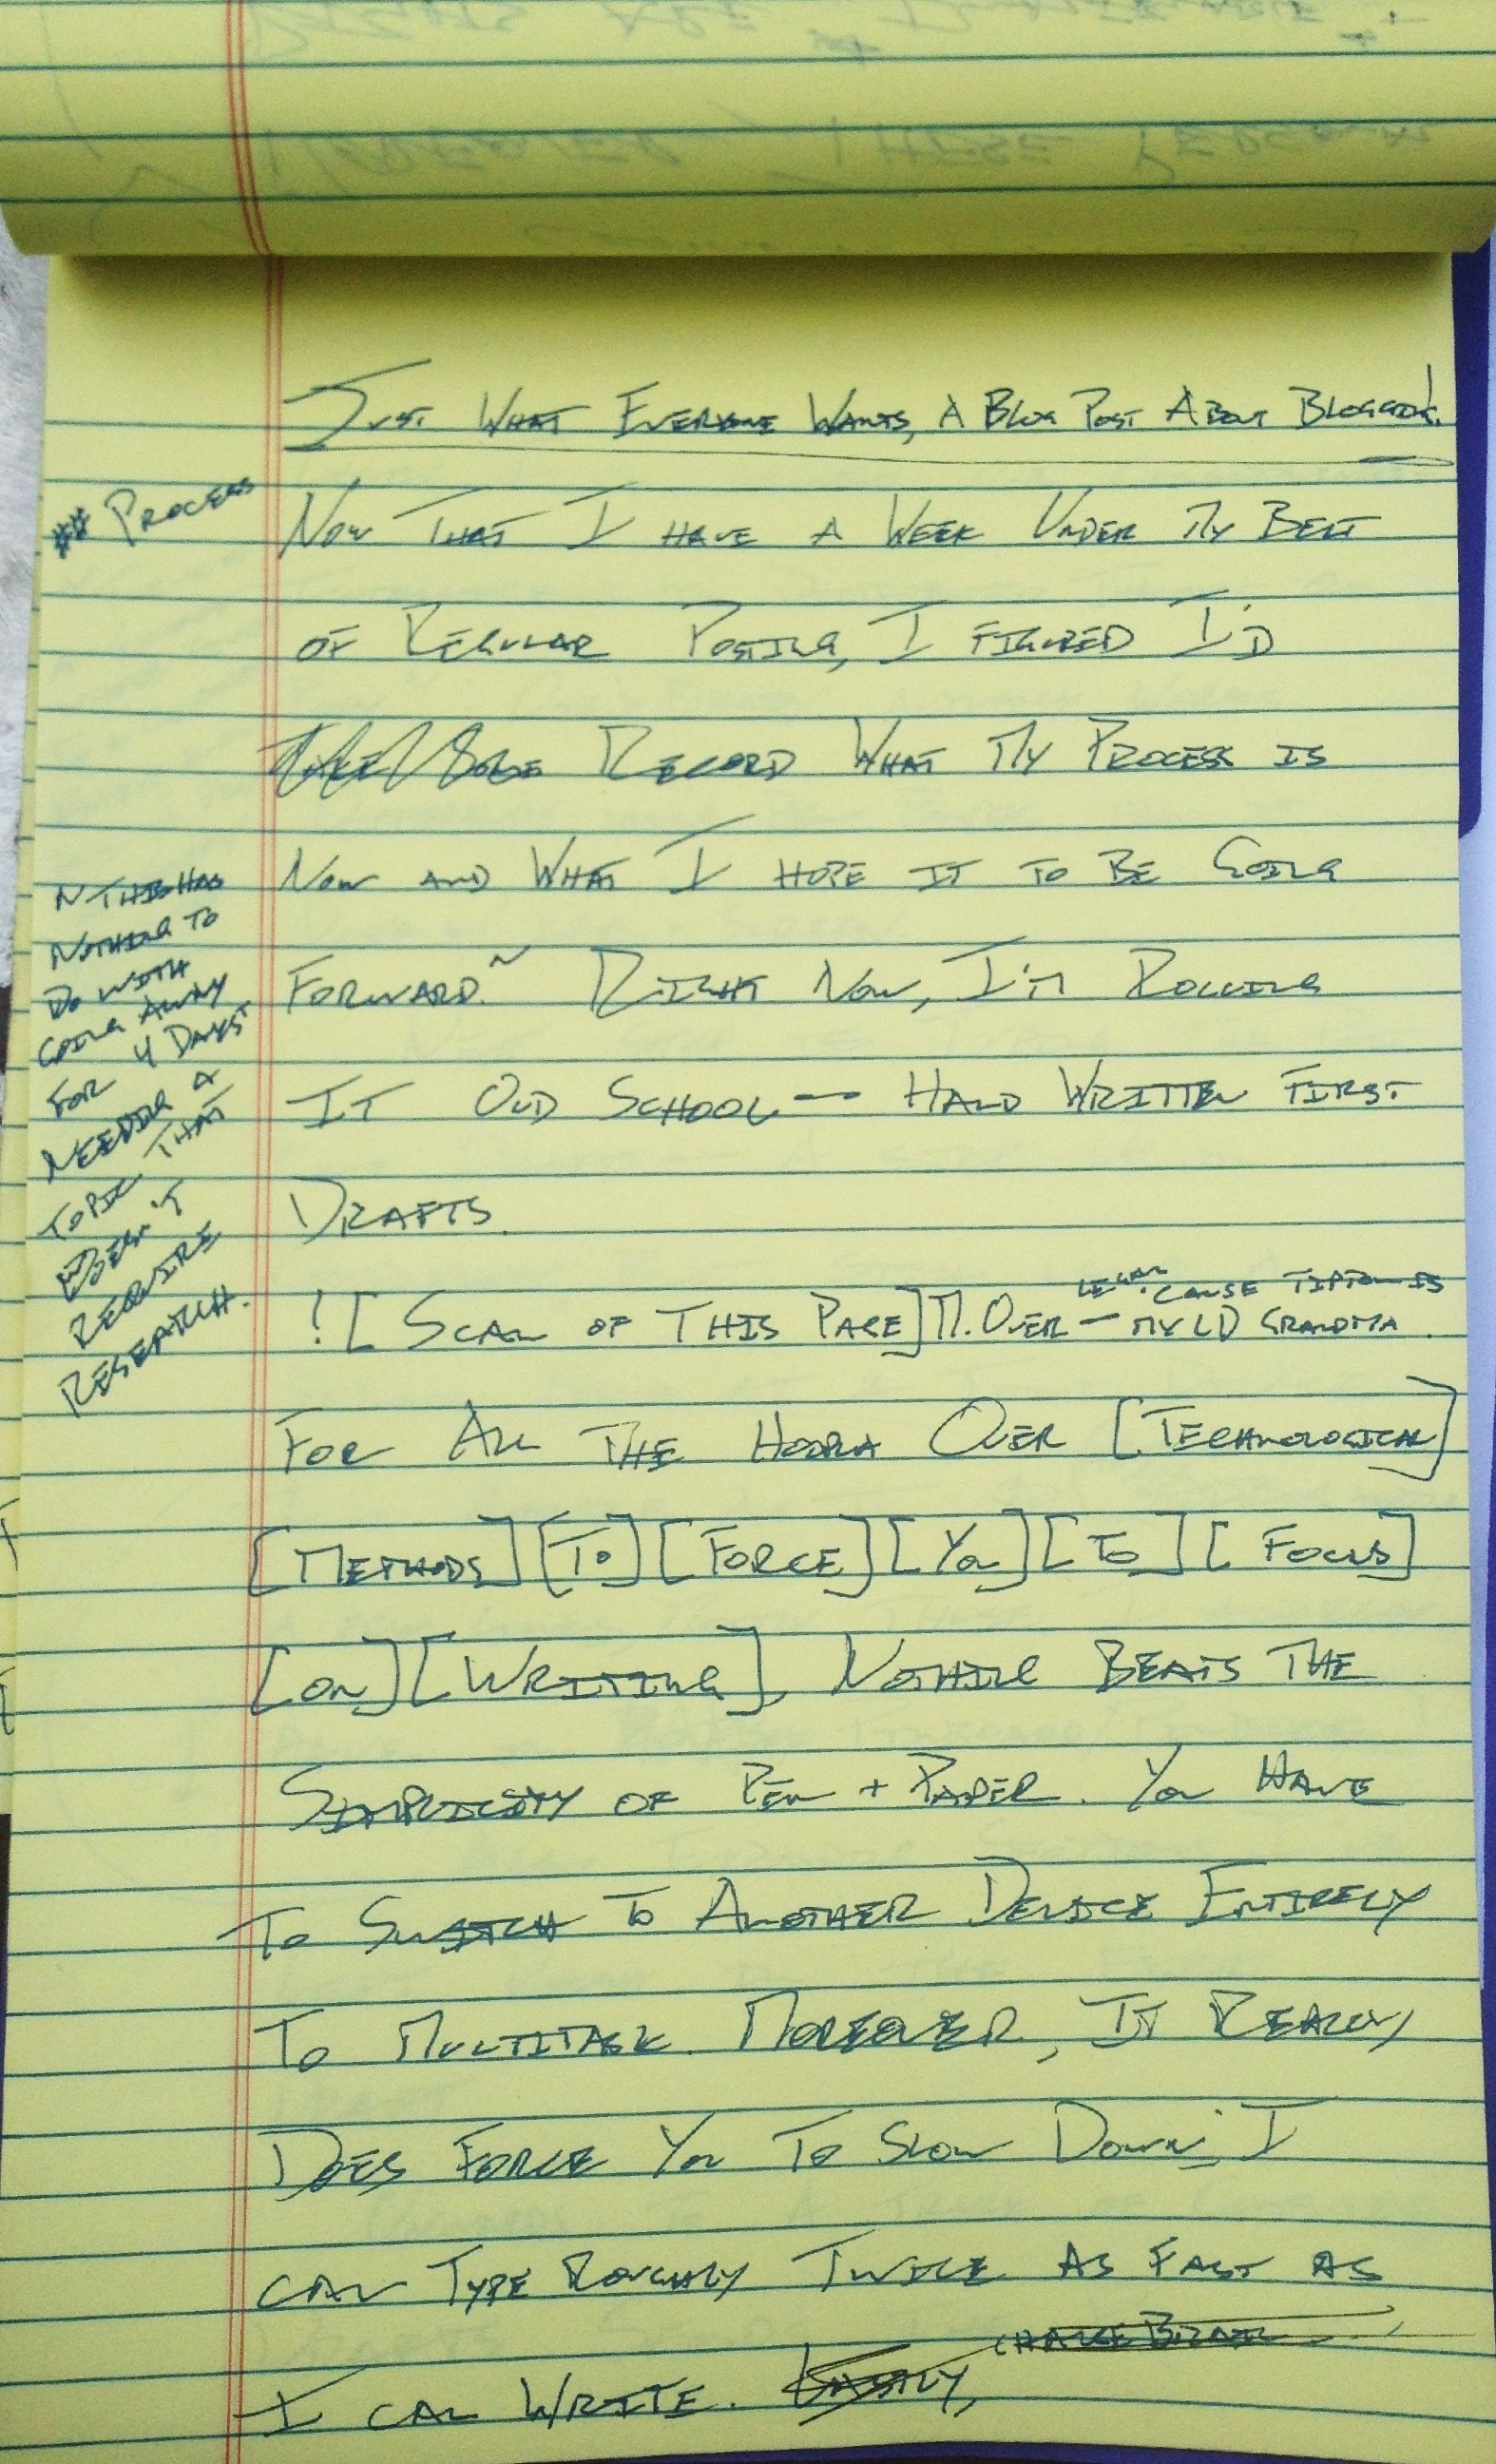 Just What Everyone Wants, A Blog Post About Blogging!
## Process
Now That I have a Week Under My Belt
of Regular Posting, I figured I'd
Record What My Process is
Now and What I hope it to be Going
Forward.~ Right Now, I'm Rolling
It Old School — Hand Written First
Drafts.
~ This Has
Nothing to
Do with
Going Away
For 4 Days +
Needing a
Topic That
Doesn't
Require
Research.
![Scan of This Page] M.Over —
legal: cause
is
my LD Grandma.
For All The Hoopla Over [Technological]
[Methods][To][Force][You][To][Focus]
[on][Writing], Nothing Beats The
Simplicity of Pen + Paper. You Have
To Switch To Another Device Entirely
To Multitask. Moreover, It Really
Does Force You To Slow Down; I
can Type Roughly Twice As Fast As
I can Write. Lastly,